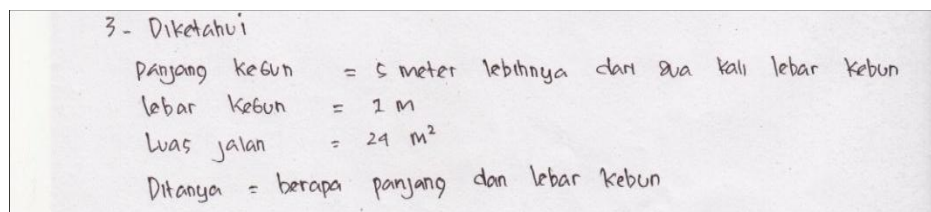 3 - Diketahui
Panjang kebun = 5 meter lebihnya dari dua kali lebar kebun
lebar kebun = 1 M
Luas jalan = 24 m²
Ditanya = berapa panjang dan lebar kebun